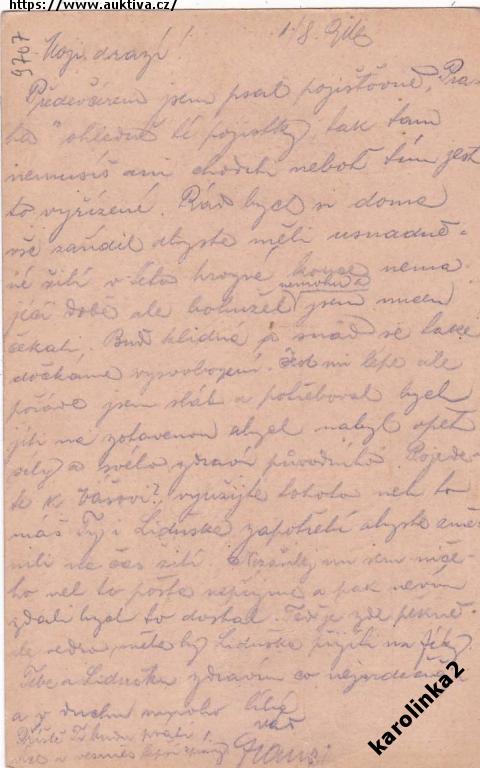 https://www.auktiva.cz/
9707
Moji drazí! 1/8.
Předevčírem jsem psal pojišťovně „Pra-
ha" ohledně té pojistky tak tam
nemusíš ani choditi neboť tím jest
to vyřízené. Rád bych si doma
vše zařídil abyste měli usnadně-
né žití v této hrozné konce nema
jící době ale bohužel nemohu a jsem nucen
čekati. Buď klidná a snad se také
dočkáme vysvobození. Jest mi lépe ale
pořáde jsem sláb a potřeboval bych
jíti na zotavenou abych nabyl opět
síly a svého zdraví původního. Pojede-
te k Vášovi? využijte tohoto neb to
máš Ty i Liduška zapotřebí abyste změ-
nili na čas žití. mi sem niče-
ho neb to pošta nepřijme a pak nevím
zdali bych to dostal. Teď je zde pěkně
vedro měla by Liduška přijíti na
Tebe a Lidušku zdravím co nejsrdečněji
a v duchu mnoho líbá
váš
Příště Ti budu psáti
více a lepší zprávy
karolinka2